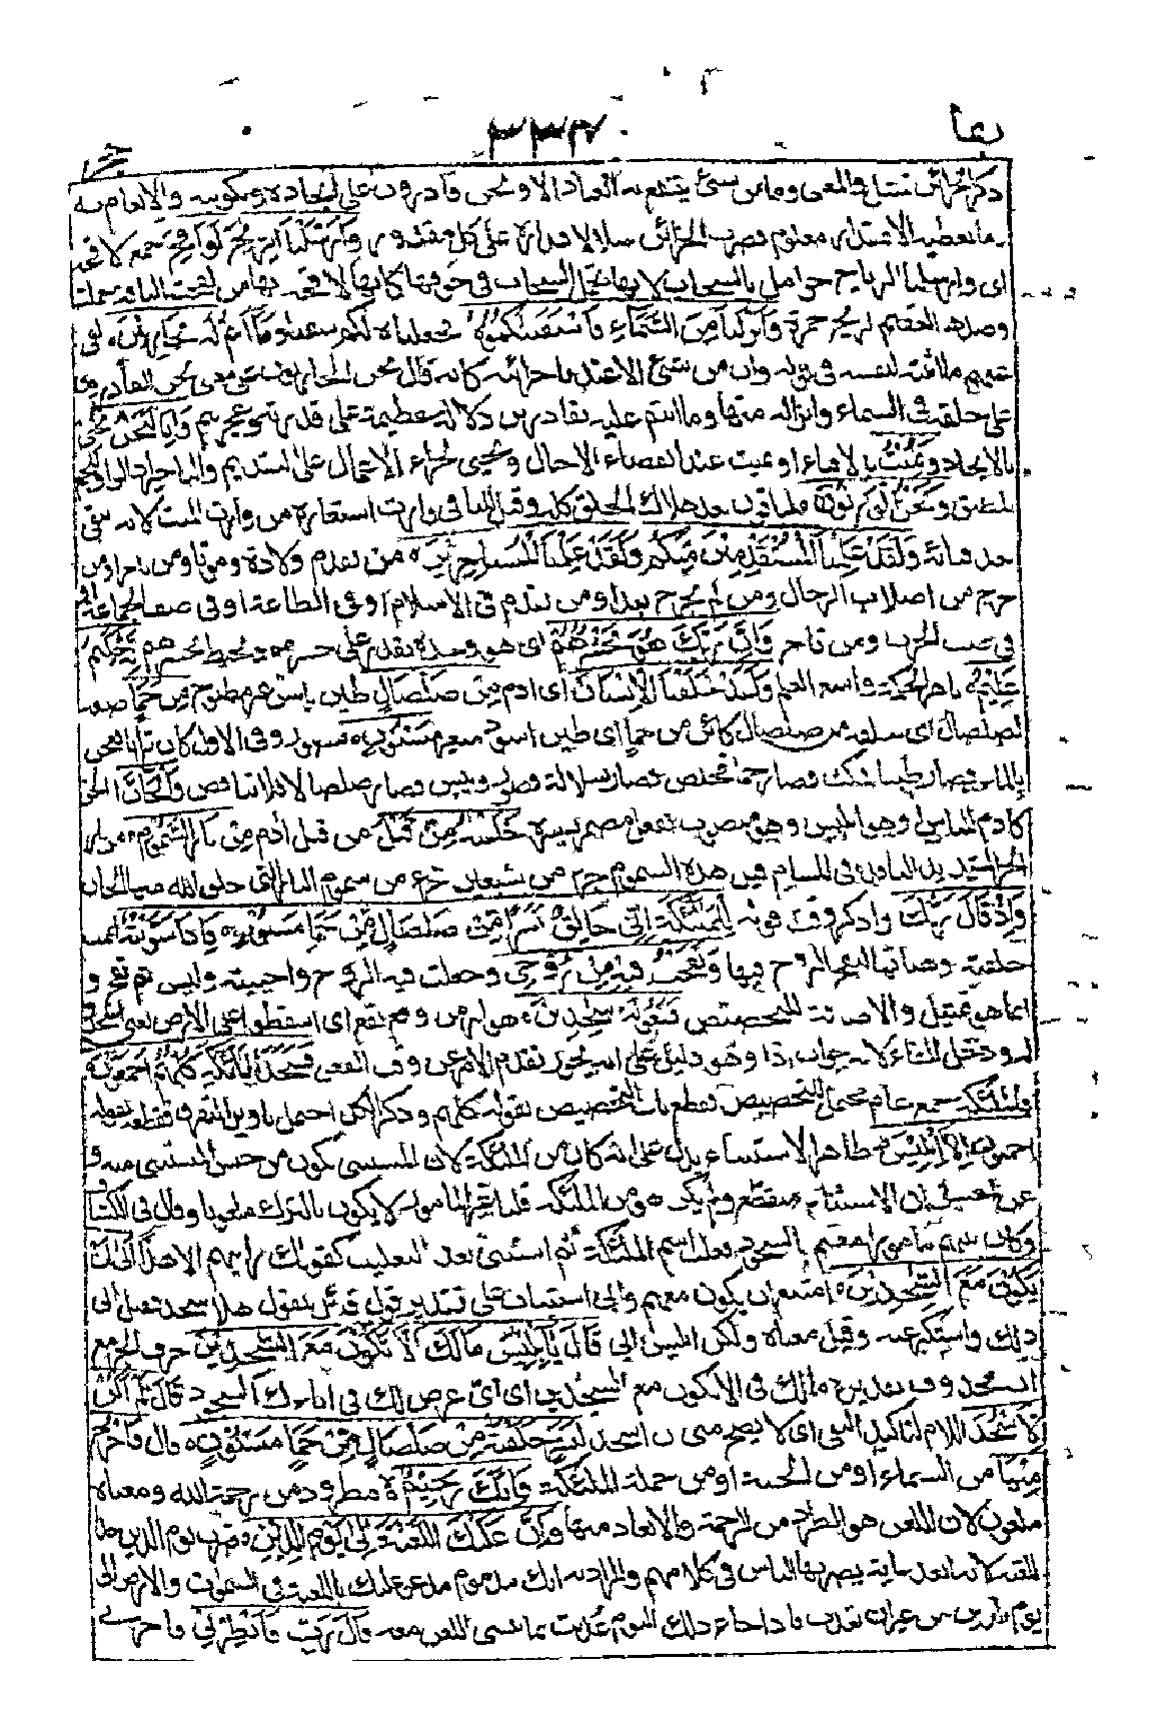 ربما
٣٣٧
ذكر الخزائن تمثيل والمعنى وما من شئ ينتفع به العباد الا ونحن قادرون على ايجاده وتكوينه والانعام به
وما نعطيه الا بمقدار معلوم فضرب الخزائن مثلا لاقتداره على كل مقدور وَأَرْسَلْنَا الرِّيٰحَ لَوَاقِحَ جمع لاقحة
اى وارسلنا الرياح حوامل بالسحاب لانها تحمل السحاب فى جوفها كانها لاقحة بها من لقحت الناقة حملت
وضدها العقيم الريح حمزة وَأَنْزَلْنَا مِنَ السَّمَاءِ مَاءً فَأَسْقَيْنٰكُمُوهُ فجعلناه لكم سقيا وَمَا أَنْتُمْ لَهُ بِخٰزِنِيْنَ نفى
عنهم ما اثبته لنفسه فى قوله وان من شئ الا عندنا خزائنه كانه قال نحن الخازنون للماء على معنى نحن القادرون
على خلقه فى السماء وانزاله منها وما انتم عليه بقادرين دلالة عظيمة على قدرته وعجزهم وَإِنَّا لَنَحْنُ نُحْيِى
بالايجاد وَنُمِيْتُ بالافناء او نميت عند انقضاء الآجال ونحيى لجزاء الاعمال على التقديم والتاخير اذ الواو للجمع
المطلق وَنَحْنُ الْوٰرِثُوْنَ الباقون بعد هلاك الخلق كله وقيل للباقى وارث استعارة من وارث الميت لانه يبقى
بعد فنائه وَلَقَدْ عَلِمْنَا الْمُسْتَقْدِمِيْنَ مِنْكُمْ وَلَقَدْ عَلِمْنَا الْمُسْتَأْخِرِيْنَ من تقدم ولادة وموتا ومن تاخر او من
خرج من اصلاب الرجال ومن لم يخرج بعد او من تقدم فى الاسلام او فى الطاعة او فى صف الجماعة او
فى صف الحرب ومن تاخر وَإِنَّ رَبَّكَ هُوَ يَحْشُرُهُمْ اى هو وحده يقدر على حشرهم ويحيط بحصرهم إِنَّهُ حَكِيْمٌ
عَلِيْمٌ باهر الحكمة واسع العلم وَلَقَدْ خَلَقْنَا الْإِنْسَانَ اى ادم مِنْ صَلْصَالٍ طين يابس غير مطبوخ مِنْ حَمَأٍ صفة
لصلصال اى خلقه من صلصال كائن من حمأ اى طين اسود متغير مَسْنُوْنٍ مصور وفى الاول كان ترابا فعجن
بالماء فصار طينا فمكث فصار حمأ فخلص فصار سلالة فصور ويبس فصار صلصالا فلا تناقض وَالْجَانَّ ابا الجن
كادم للناس او هو ابليس وهو منصوب بفعل مضمر يفسره خَلَقْنٰهُ مِنْ قَبْلُ من قبل ادم مِنْ نَارِ السَّمُوْمِ من نار
الحر الشديد النافذ فى المسام قيل هذه السموم جزء من سبعين جزء من سموم النار التى خلق الله منها الجان
وَإِذْ قَالَ رَبُّكَ واذكر وقت قوله لِلْمَلٰئِكَةِ إِنِّى خَالِقٌ بَشَرًا مِنْ صَلْصَالٍ مِنْ حَمَأٍ مَسْنُوْنٍ فَإِذَا سَوَّيْتُهُ اتممت
خلقته وهياتها لنفخ الروح فيها وَنَفَخْتُ فِيْهِ مِنْ رُوْحِى وجعلت فيه الروح واحييته وليس ثم نفخ و
انما هو تمثيل والاضافة للتخصيص فَقَعُوْا لَهُ سٰجِدِيْنَ هو امر من وقع يقع اى اسقطوا على الارض يعنى اسجدوا
له ودخل الفاء لانه جواب اذا وهو دليل على انه يجوز تقدم الامر عن وقت الفعل فَسَجَدَ الْمَلٰئِكَةُ كُلُّهُمْ أَجْمَعُوْنَ
فالملئكة جمع عام محتمل للتخصيص فقطع باب التخصيص بقوله كلهم وذكر الكل احتمل تاويل التفرق فقطعه بقوله
اجمعون إِلَّا إِبْلِيْسَ ظاهر الاستثناء يدل على انه كان من الملئكة لان المستثنى يكون من جنس المستثنى منه و
عن الحسن ان الاستثناء منقطع ولم يكن هو من الملئكة قلنا غير المامور لا يكون بالترك ملعونا وقال فى الكشاف
وكان بينهم مامورا معهم بالسجود فغلب اسم الملئكة ثم استثنى بعد التغليب كقولك رايتهم الا هندا أَبٰى أَنْ
يَكُوْنَ مَعَ السّٰجِدِيْنَ امتنع ان يكون معهم وابى استيناف على تقدير قول قائل يقول هلا سجد فقيل ابى
ذلك واستكبر عنه وقيل معناه ولكن ابليس ابى قَالَ يٰإِبْلِيْسُ مَالَكَ أَلَّا تَكُوْنَ مَعَ السّٰجِدِيْنَ حرف الجر مع
ان محذوف تقديره مالك فى الا تكون مع الساجدين اى اى غرض لك فى ابائك السجود قَالَ لَمْ أَكُنْ
لِأَسْجُدَ اللام لتاكيد النفى اى لا يصح منى ان اسجد لِبَشَرٍ خَلَقْتَهُ مِنْ صَلْصَالٍ مِنْ حَمَإٍ مَسْنُوْنٍ قَالَ فَاخْرُجْ
مِنْهَا من السماء او من الجنة او من جملة الملئكة فَإِنَّكَ رَجِيْمٌ مطرود من رحمة الله ومعناه
ملعون لان اللعن هو الطرد من الرحمة والابعاد منها وَإِنَّ عَلَيْكَ اللَّعْنَةَ إِلٰى يَوْمِ الدِّيْنِ ضرب يوم الدين حدا
للعنة لانه ابعد غاية يضربها الناس فى كلامهم والمراد به انك مذموم مدعو عليك باللعنة فى السموات والارض الى
يوم الدين من غير ان تعذب فاذا جاء ذلك اليوم عذبت بما تنسى اللعن معه قَالَ رَبِّ فَأَنْظِرْنِى فاخرنى